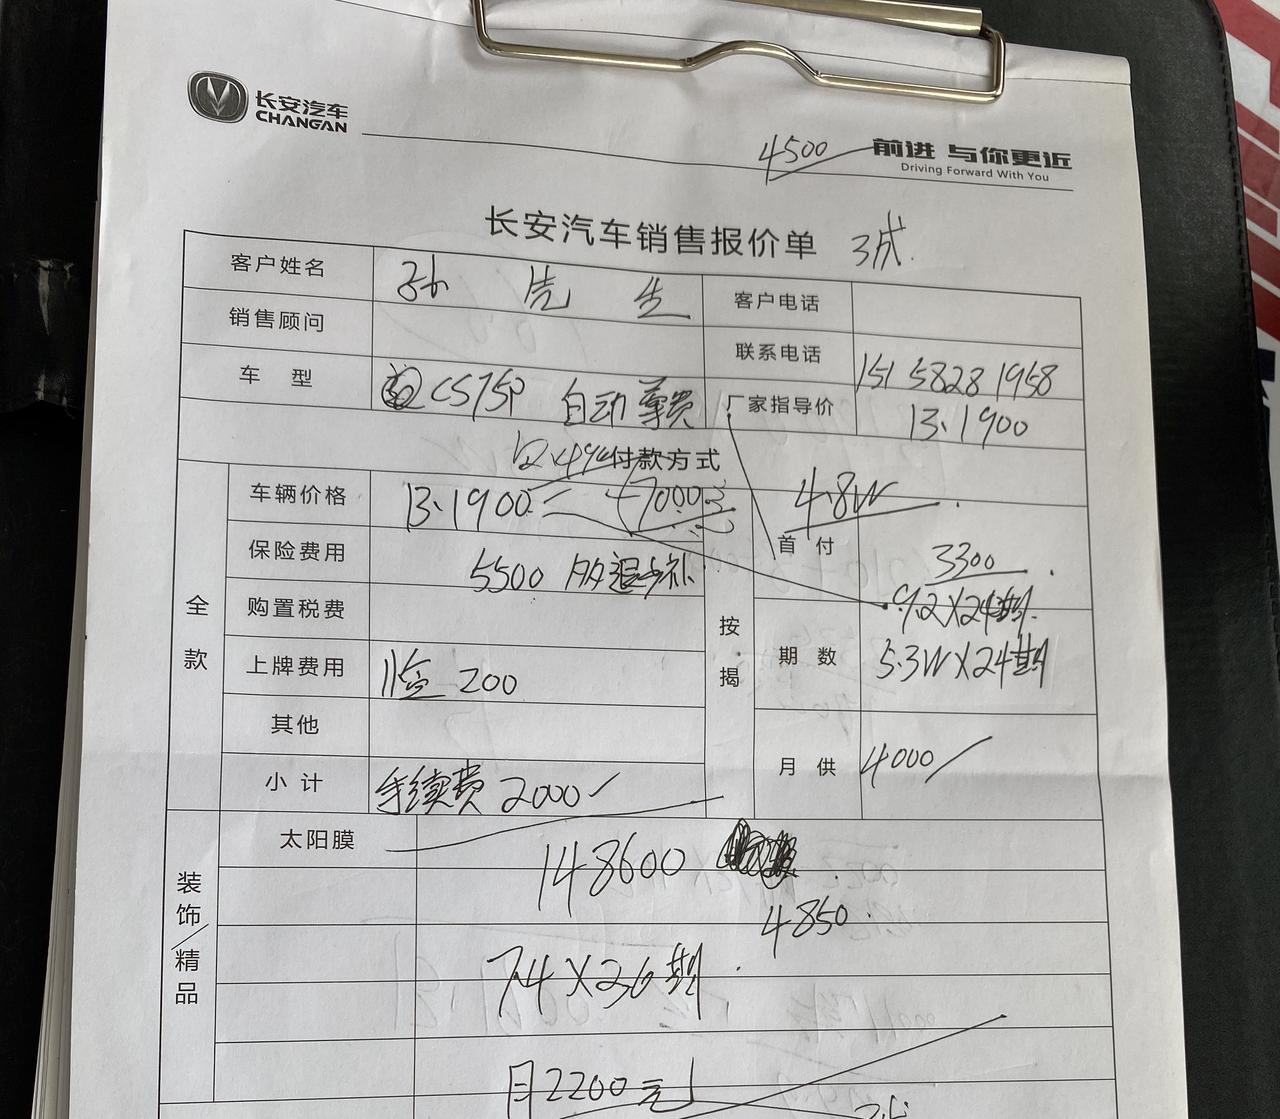 长安汽车
CHANGAN
4500
前进 与你更近
Driving Forward With You
长安汽车销售报价单 3成
客户姓名 孙 先 生 客户电话
销售顾问 联系电话 151 5828 1958
车 型 CS75P 自动尊贵 厂家指导价 13.1900
付款方式
全款
车辆价格 13.1900 7000
保险费用 5500 多退少补
购置税费
上牌费用 临 200
其他
小计 手续费 2000
按揭
4.8W
首付 3300
9.2X24期
期数 5.3WX24期
月供 4000
装饰/精品
太阳膜
148600
4850
7.4X36期
月2200元